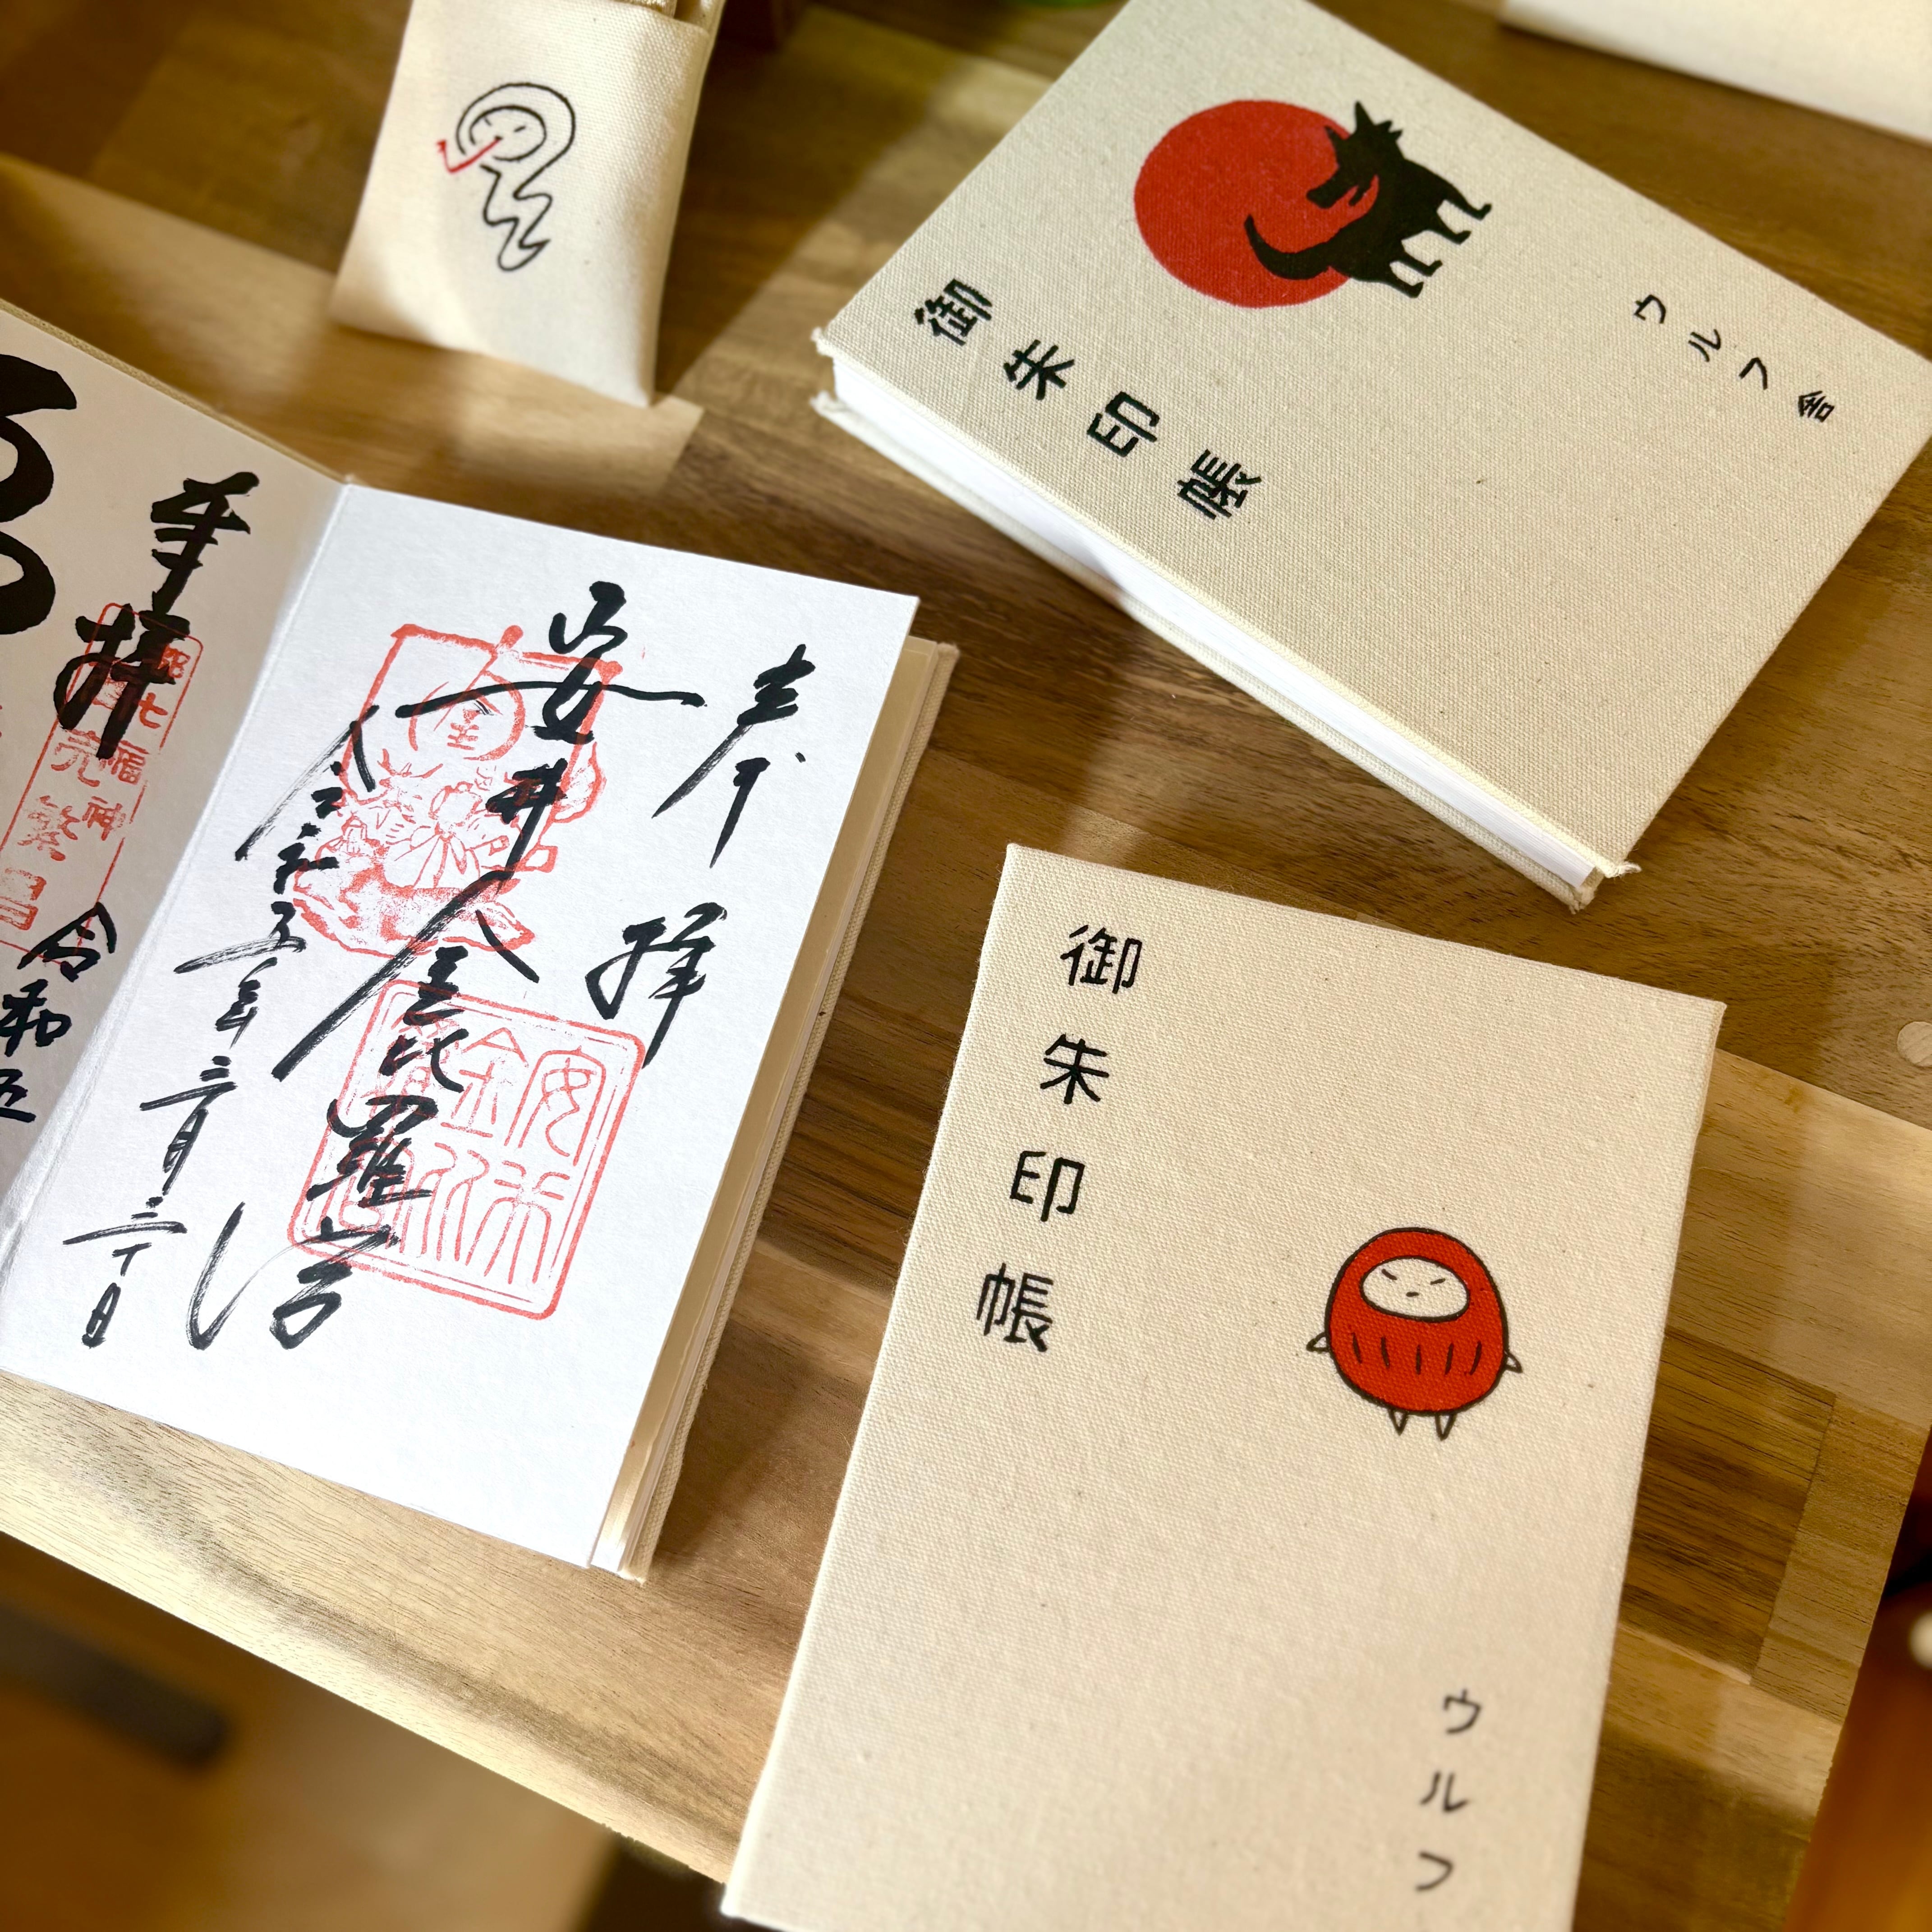 御朱印帳
ウルフ舎
奉拝
都七福神
令和五
奉拝
安井金比羅宮
令和五年三月二十日
御朱印帳
ウルフ